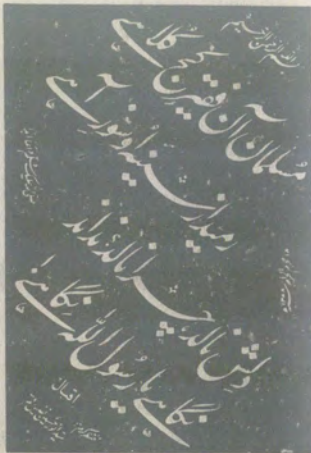 بسم الله الرحمن الرحیم
مسلمان آن فقیر کج کلاہے
رمید از سینہ او سوز آہے
دلش نالد چرا نالد نداند
نگاہے یا رسول اللہ نگاہے
اقبال